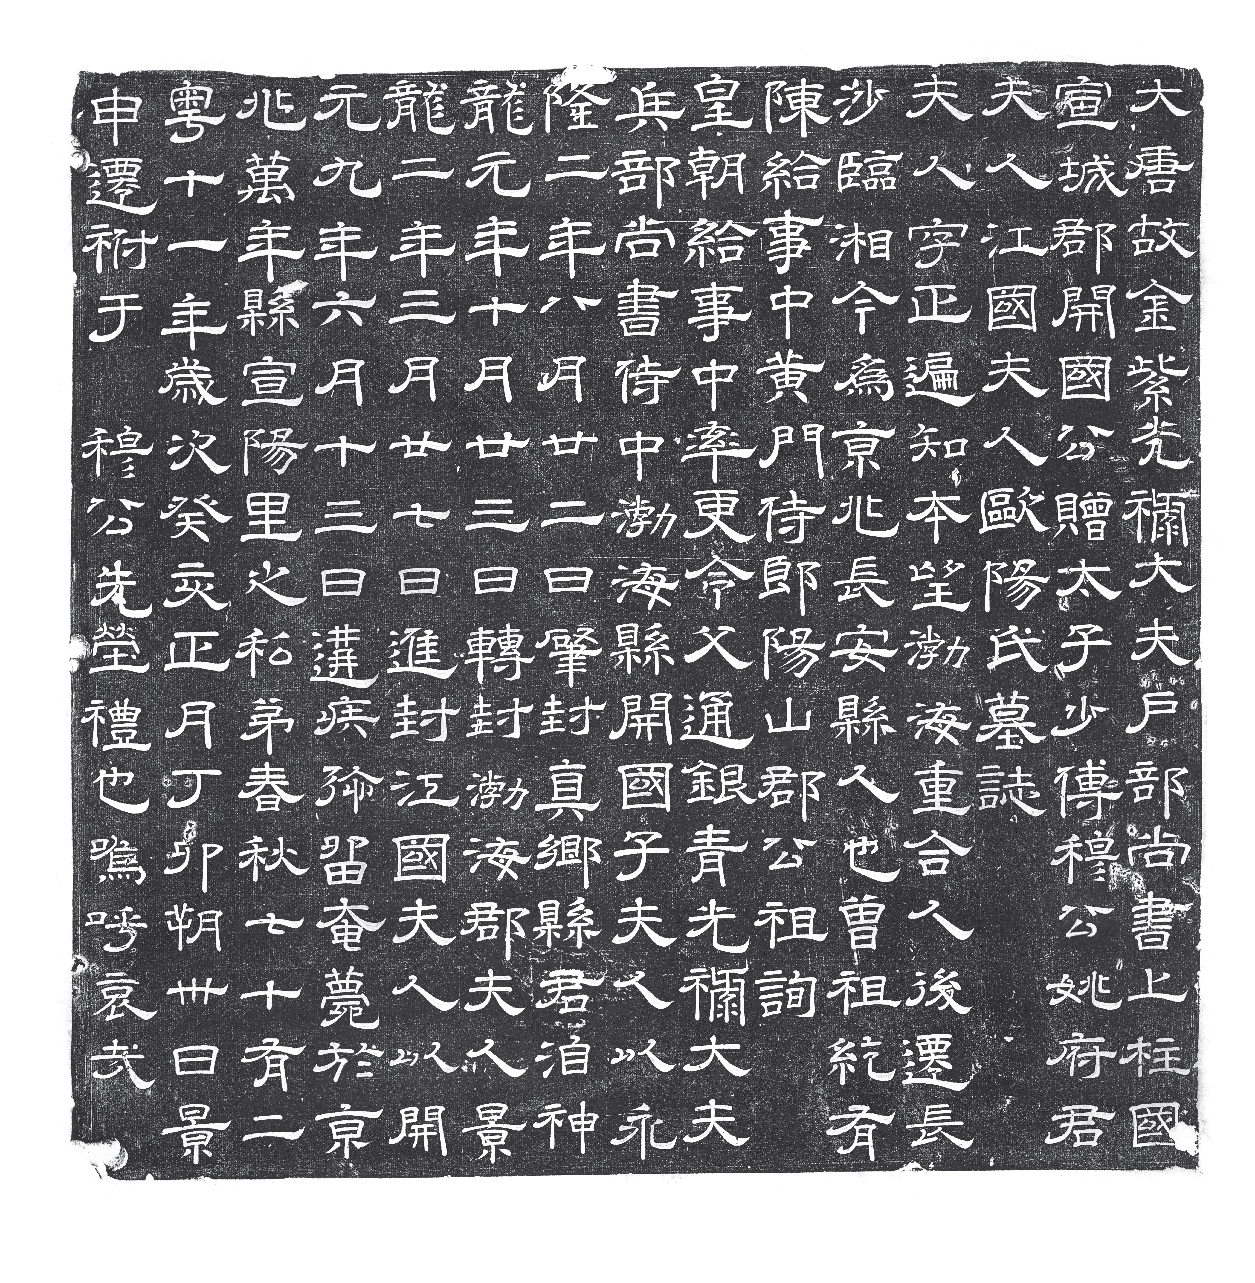 大唐故金紫光祿大夫戶部尚書上柱國
宣城郡開國公贈太子少傅穆公姚府君
夫人江國夫人歐陽氏墓誌
夫人字正遍知本望渤海重合人後遷長
沙臨湘今為京兆長安縣人也曾祖紇有
陳給事中黃門侍郎陽山郡公祖詢
皇朝給事中率更令父通銀青光祿大夫
兵部尚書侍中渤海縣開國子夫人以永
隆二年八月廿二日肇封真鄉縣君洎神
龍元年十月廿三日轉封渤海郡夫人景
龍二年三月廿七日進封江國夫人以開
元九年六月十三日遘疾弥留奄薨於京
兆萬年縣宣陽里之私弟春秋七十有二
粵十一年歲次癸亥正月丁卯朔卅日景
申遷祔于 穆公先塋禮也嗚呼哀哉